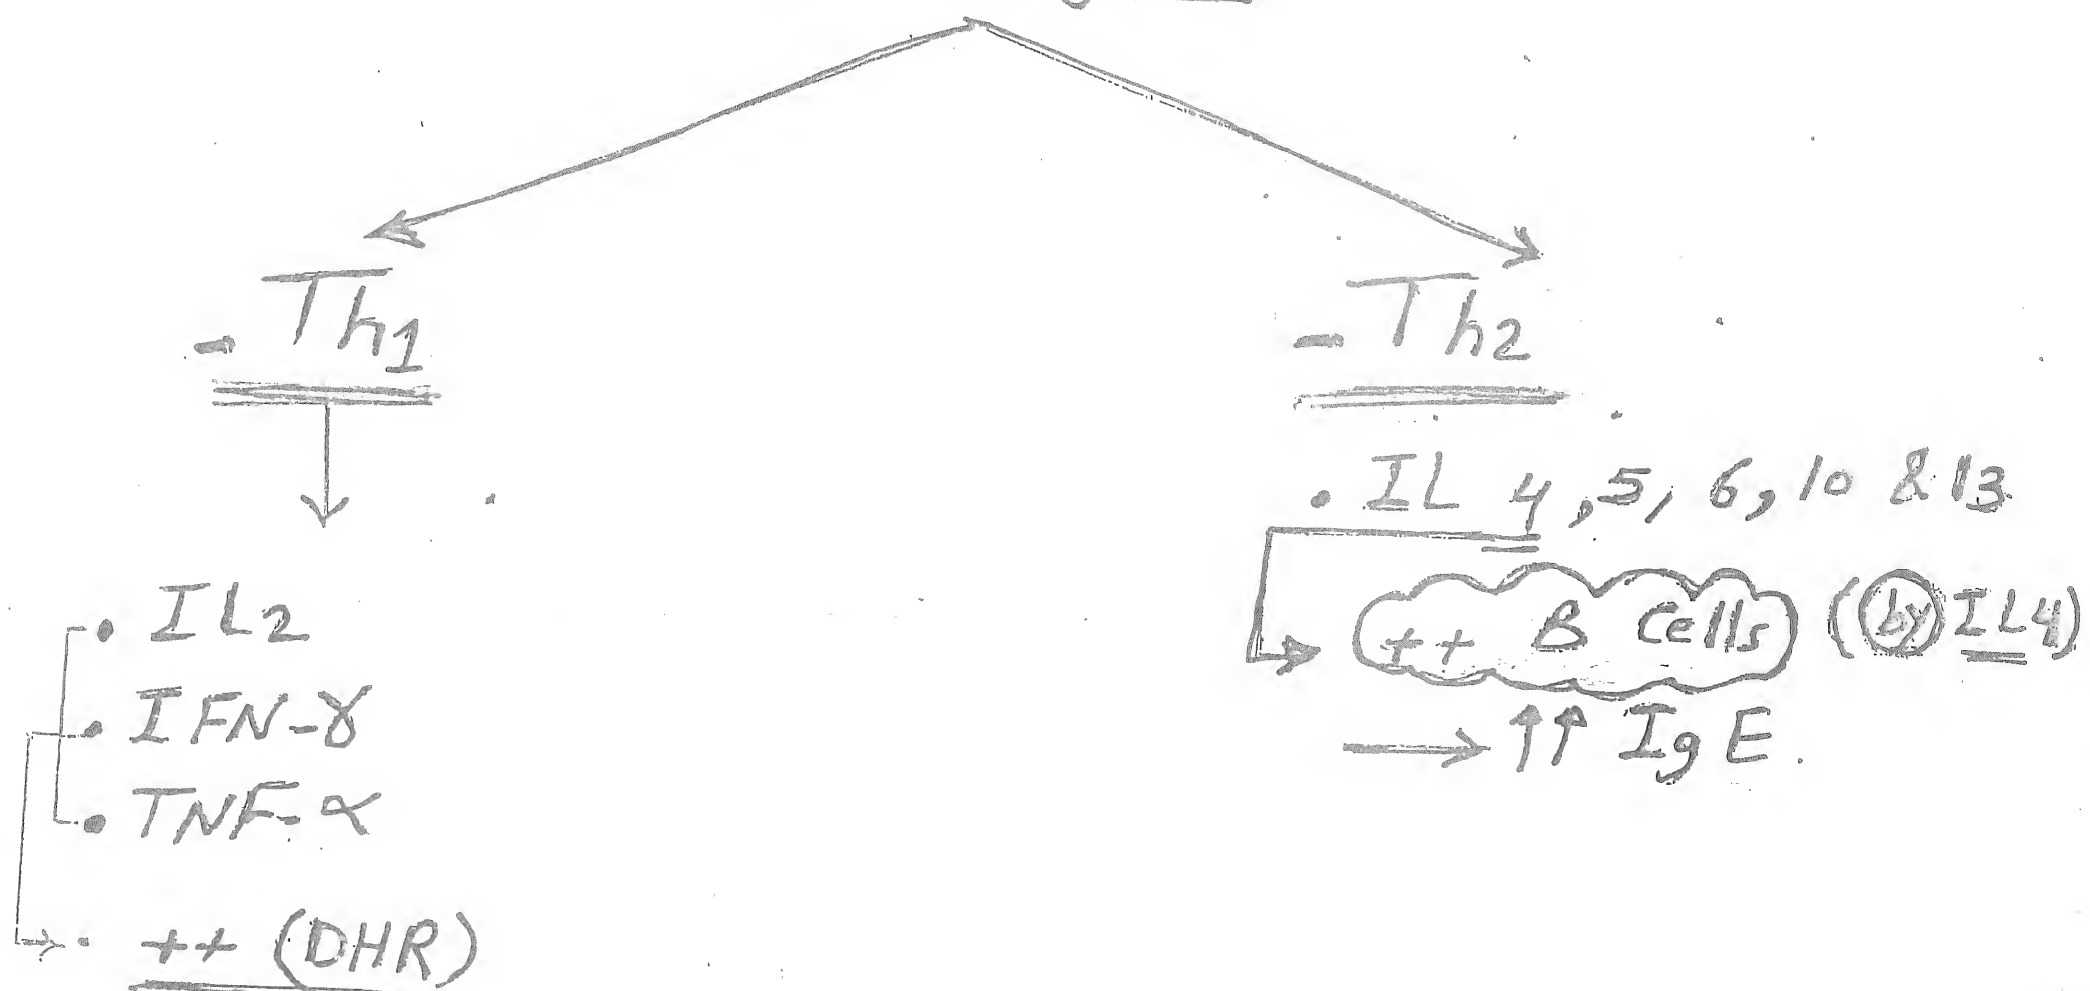 - Th1
• IL2
• IFN-γ
• TNF-α
• ++ (DHR)
- Th2
• IL 4, 5, 6, 10 & 13
++ B Cells (by IL4)
→ ↑↑ IgE.